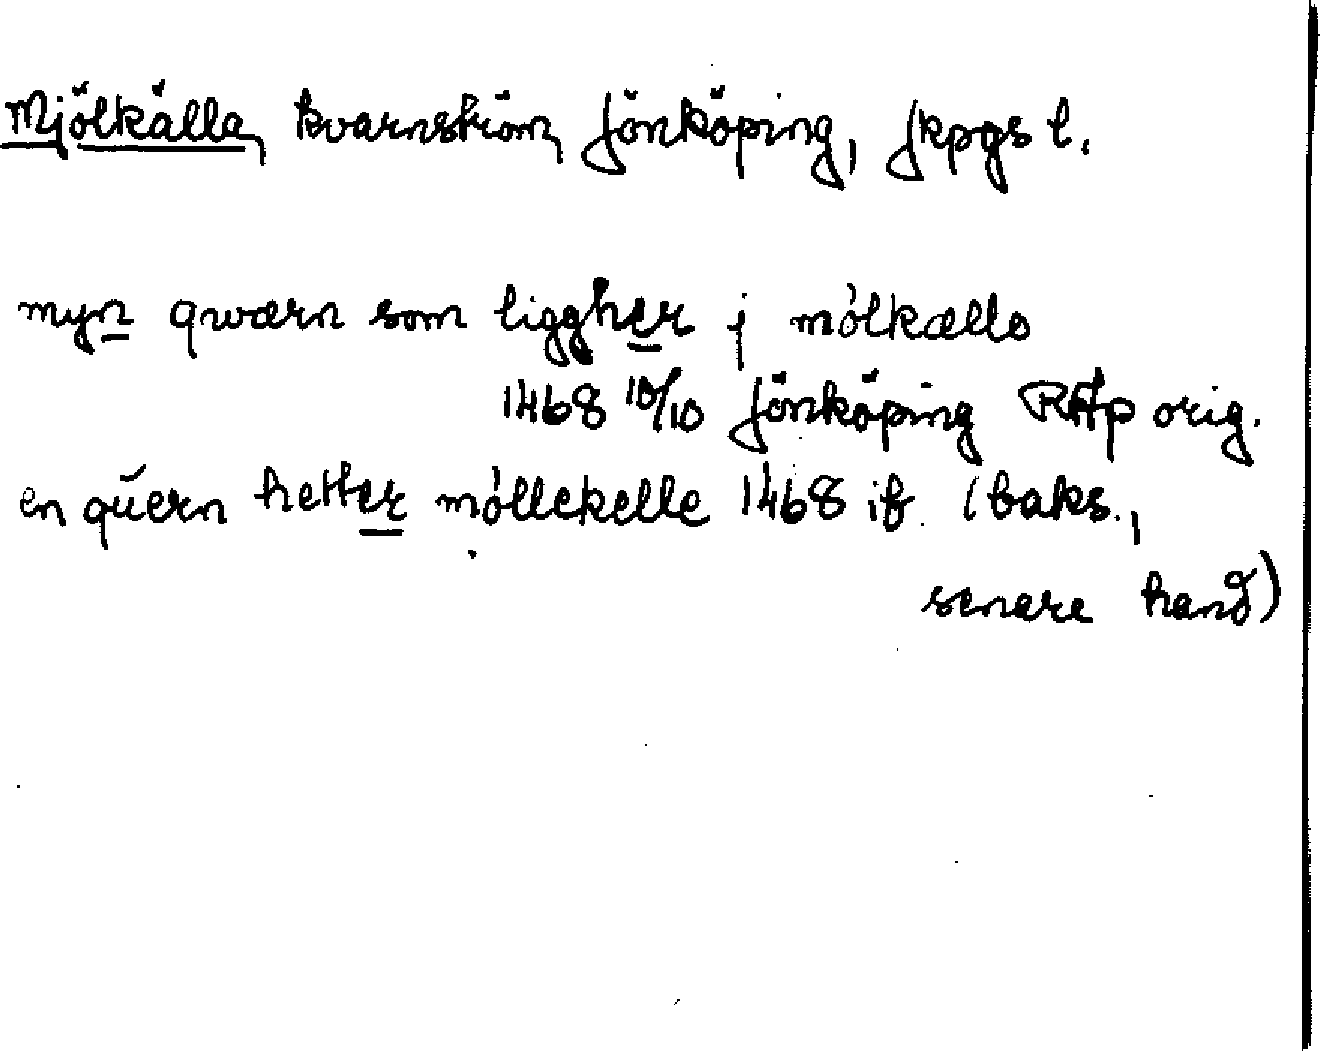 Mjölkälla, kvarnström, Jönköping, Jkpgs l.
myn qwærn som liggher j mólkællo
1468 10/10 Jönköping RAp orig.
en qúern hetter móllekelle 1468 ib. (baks.,
senare hand)